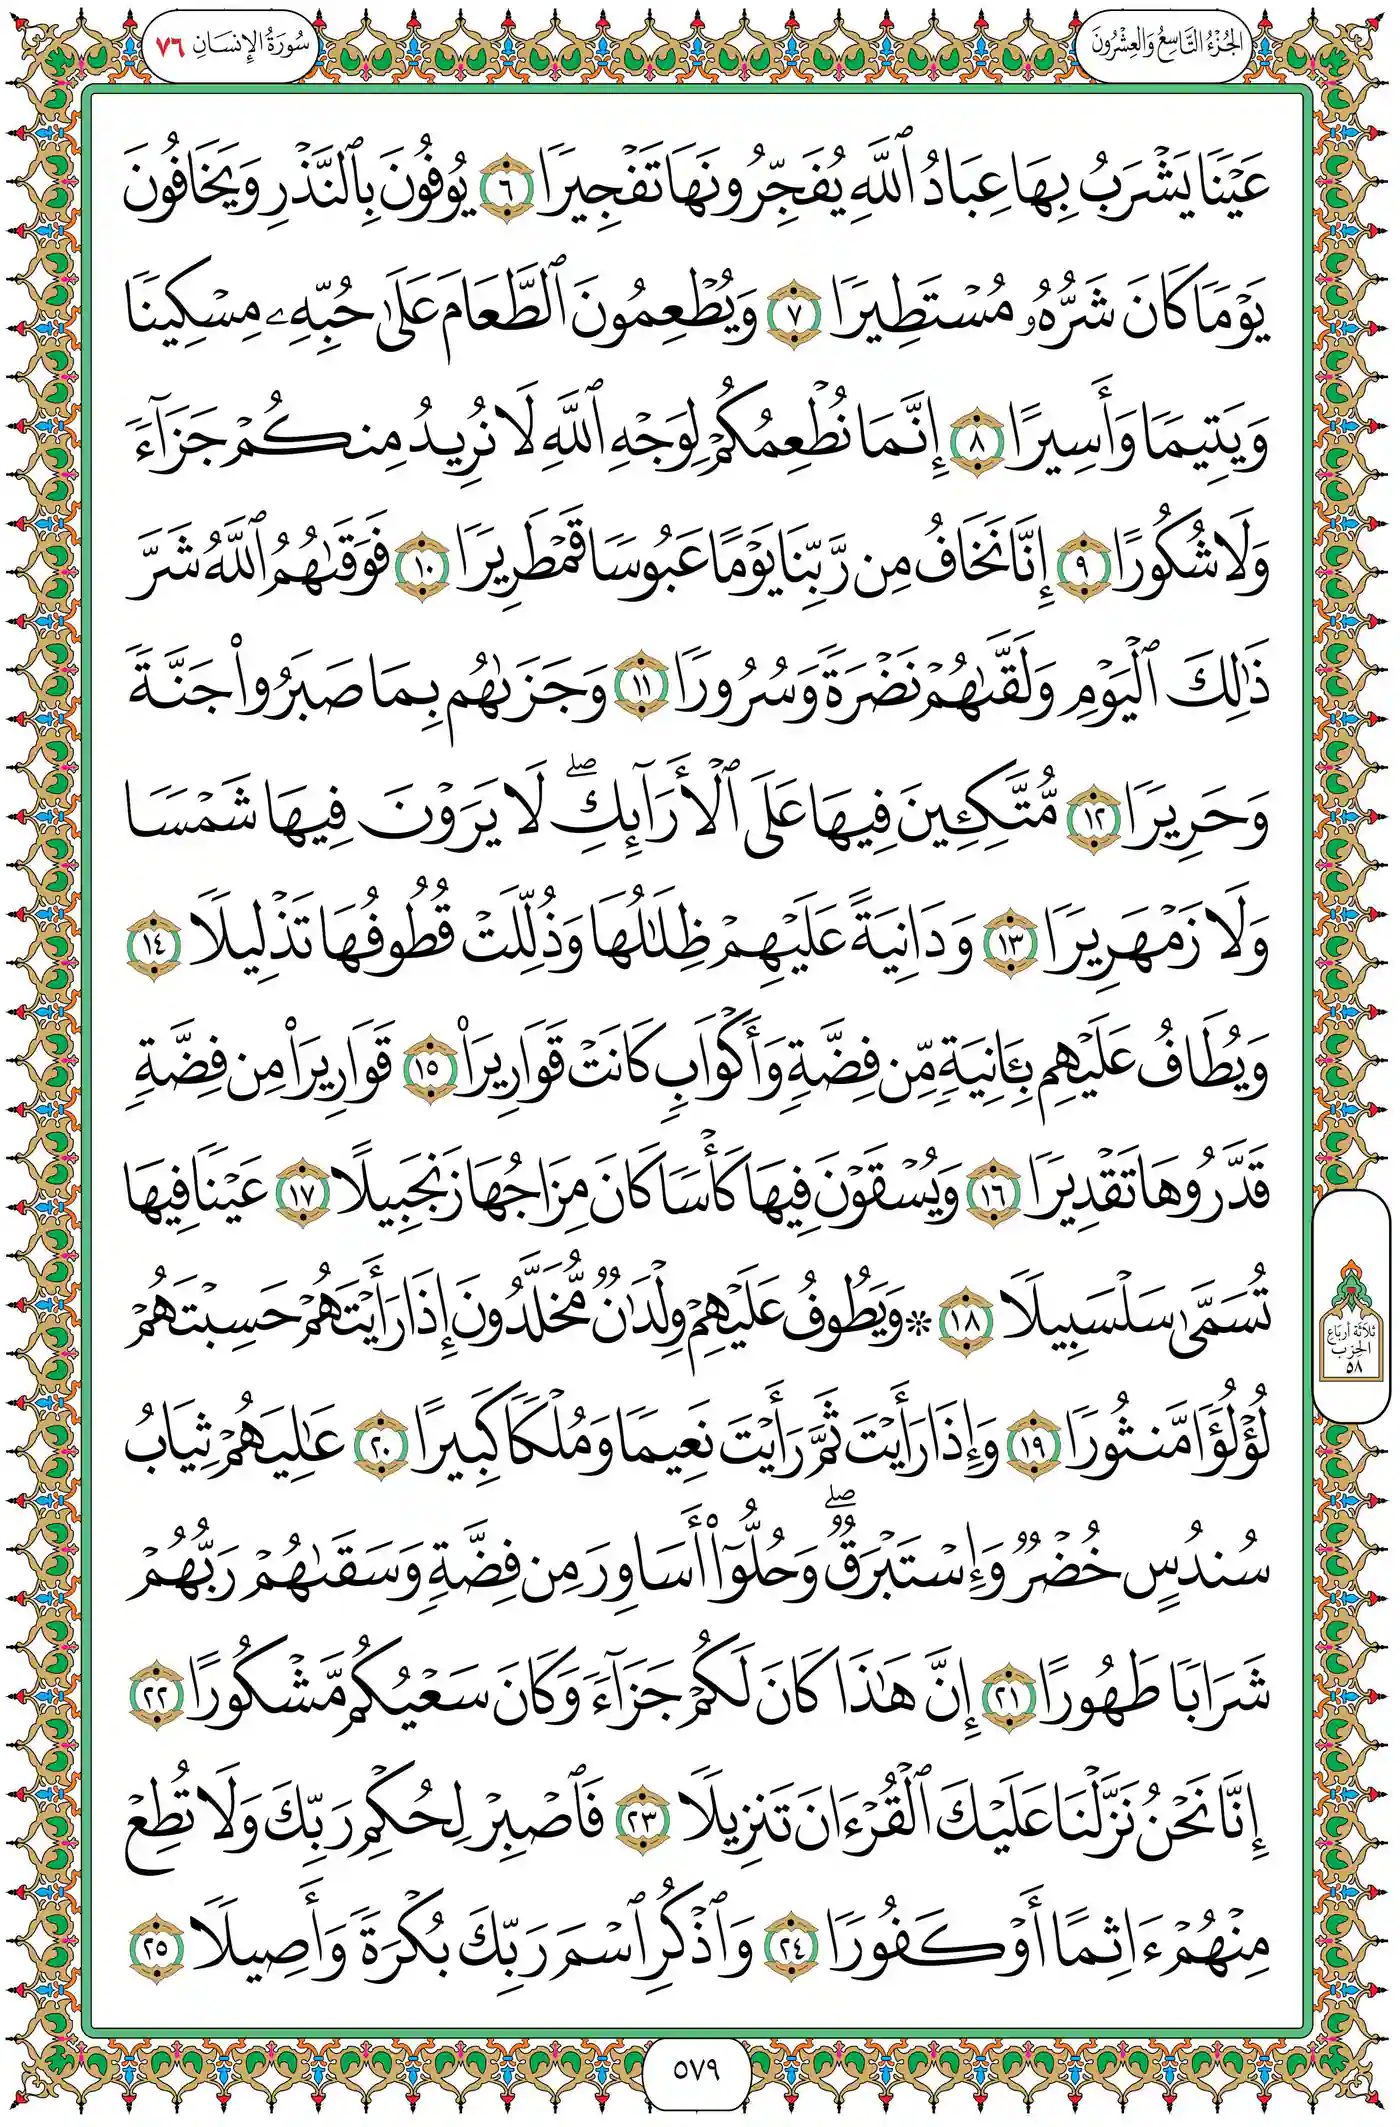 الجُزْءُ التَّاسِعُ وَالعِشْرُونَ
سُورَةُ الإِنسَانِ ٧٦
عَيۡنٗا يَشۡرَبُ بِهَا عِبَادُ ٱللَّهِ يُفَجِّرُونَهَا تَفۡجِيرٗا ٦ يُوفُونَ بِٱلنَّذۡرِ وَيَخَافُونَ
يَوۡمٗا كَانَ شَرُّهُۥ مُسۡتَطِيرٗا ٧ وَيُطۡعِمُونَ ٱلطَّعَامَ عَلَىٰ حُبِّهِۦ مِسۡكِينٗا
وَيَتِيمٗا وَأَسِيرًا ٨ إِنَّمَا نُطۡعِمُكُمۡ لِوَجۡهِ ٱللَّهِ لَا نُرِيدُ مِنكُمۡ جَزَآءٗ
وَلَا شُكُورًا ٩ إِنَّا نَخَافُ مِن رَّبِّنَا يَوۡمًا عَبُوسٗا قَمۡطَرِيرٗا ١٠ فَوَقَىٰهُمُ ٱللَّهُ شَرَّ
ذَٰلِكَ ٱلۡيَوۡمِ وَلَقَّىٰهُمۡ نَضۡرَةٗ وَسُرُورٗا ١١ وَجَزَىٰهُم بِمَا صَبَرُواْ جَنَّةٗ
وَحَرِيرٗا ١٢ مُّتَّكِـِٔينَ فِيهَا عَلَى ٱلۡأَرَآئِكِۖ لَا يَرَوۡنَ فِيهَا شَمۡسٗا
وَلَا زَمۡهَرِيرٗا ١٣ وَدَانِيَةً عَلَيۡهِمۡ ظِلَٰلُهَا وَذُلِّلَتۡ قُطُوفُهَا تَذۡلِيلٗا ١٤
وَيُطَافُ عَلَيۡهِم بِـَٔانِيَةٖ مِّن فِضَّةٖ وَأَكۡوَابٖ كَانَتۡ قَوَارِيرَا۠ ١٥ قَوَارِيرَاْ مِن فِضَّةٖ
قَدَّرُوهَا تَقۡدِيرٗا ١٦ وَيُسۡقَوۡنَ فِيهَا كَأۡسٗا كَانَ مِزَاجُهَا زَنجَبِيلًا ١٧ عَيۡنٗا فِيهَا
تُسَمَّىٰ سَلۡسَبِيلٗا ١٨ ۞ وَيَطُوفُ عَلَيۡهِمۡ وِلۡدَٰنٞ مُّخَلَّدُونَ إِذَا رَأَيۡتَهُمۡ حَسِبۡتَهُمۡ
لُؤۡلُؤٗا مَّنثُورٗا ١٩ وَإِذَا رَأَيۡتَ ثَمَّ رَأَيۡتَ نَعِيمٗا وَمُلۡكٗا كَبِيرًا ٢٠ عَٰلِيَهُمۡ ثِيَابُ
سُندُسٍ خُضۡرٞ وَإِسۡتَبۡرَقٞۖ وَحُلُّوٓاْ أَسَاوِرَ مِن فِضَّةٖ وَسَقَىٰهُمۡ رَبُّهُمۡ
شَرَابٗا طَهُورًا ٢١ إِنَّ هَٰذَا كَانَ لَكُمۡ جَزَآءٗ وَكَانَ سَعۡيُكُم مَّشۡكُورًا ٢٢
إِنَّا نَحۡنُ نَزَّلۡنَا عَلَيۡكَ ٱلۡقُرۡءَانَ تَنزِيلٗا ٢٣ فَٱصۡبِرۡ لِحُكۡمِ رَبِّكَ وَلَا تُطِعۡ
مِنۡهُمۡ ءَاثِمًا أَوۡ كَفُورٗا ٢٤ وَٱذۡكُرِ ٱسۡمَ رَبِّكَ بُكۡرَةٗ وَأَصِيلٗا ٢٥
ثَلَاثَةُ أَرْبَاعِ
الحِزْبِ
٥٨
٥٧٩